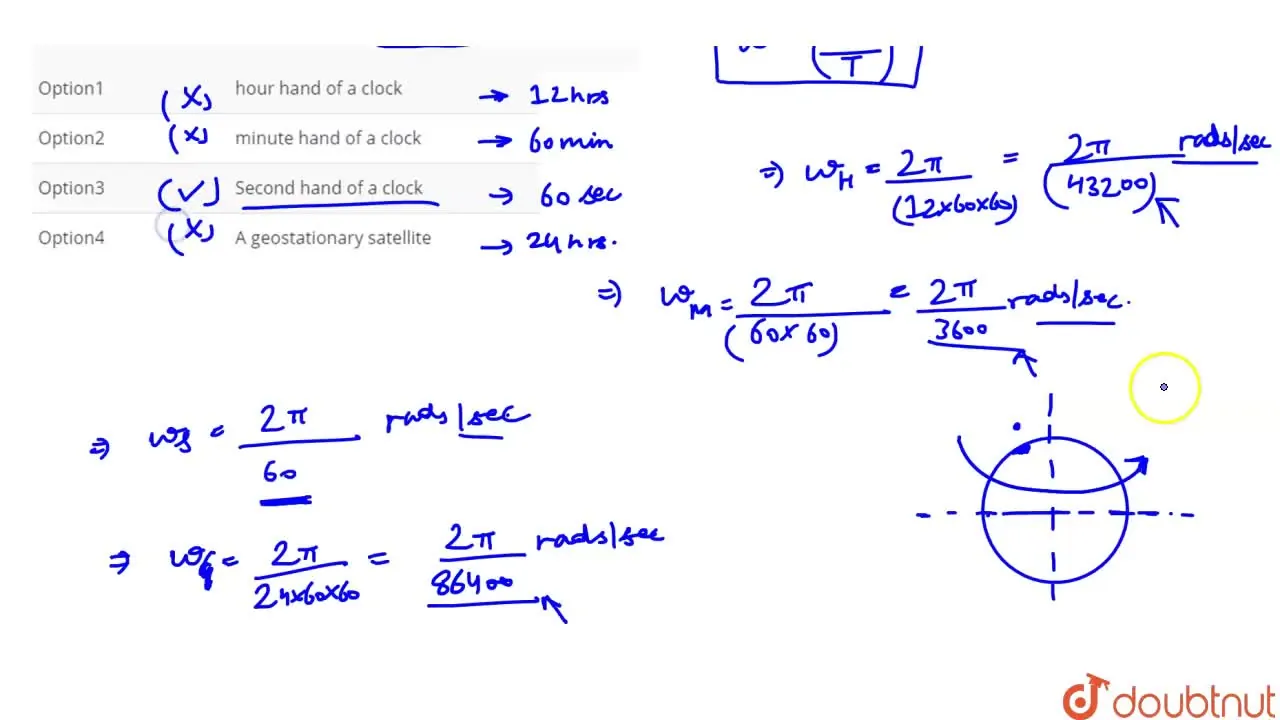 ω = (2π/T)
Option1 (X) hour hand of a clock → 12 hrs
Option2 (X) minute hand of a clock → 60 min
Option3 (✓) Second hand of a clock → 60 sec
Option4 (X) A geostationary satellite → 24 hrs.
⇒ ω_H = 2π/(12×60×60) = 2π/(43200) rads/sec
⇒ ω_M = 2π/(60×60) = 2π/3600 rads/sec.
⇒ ω_S = 2π/60 rads/sec
⇒ ω_G = 2π/24×60×60 = 2π/86400 rads/sec
doubtnut